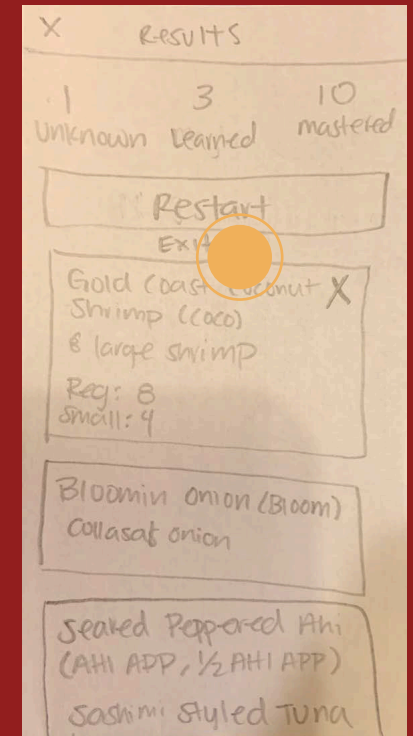 X Results
1 3 10
Unknown Learned mastered
Restart
Exit
Gold Coast Coconut X
Shrimp (COCO)
8 large shrimp
Reg: 8
Small: 4
Bloomin Onion (Bloom)
Collasat onion
Seared Peppered Ahi
(AHI APP, 1/2 AHI APP)
Sashimi Styled Tuna